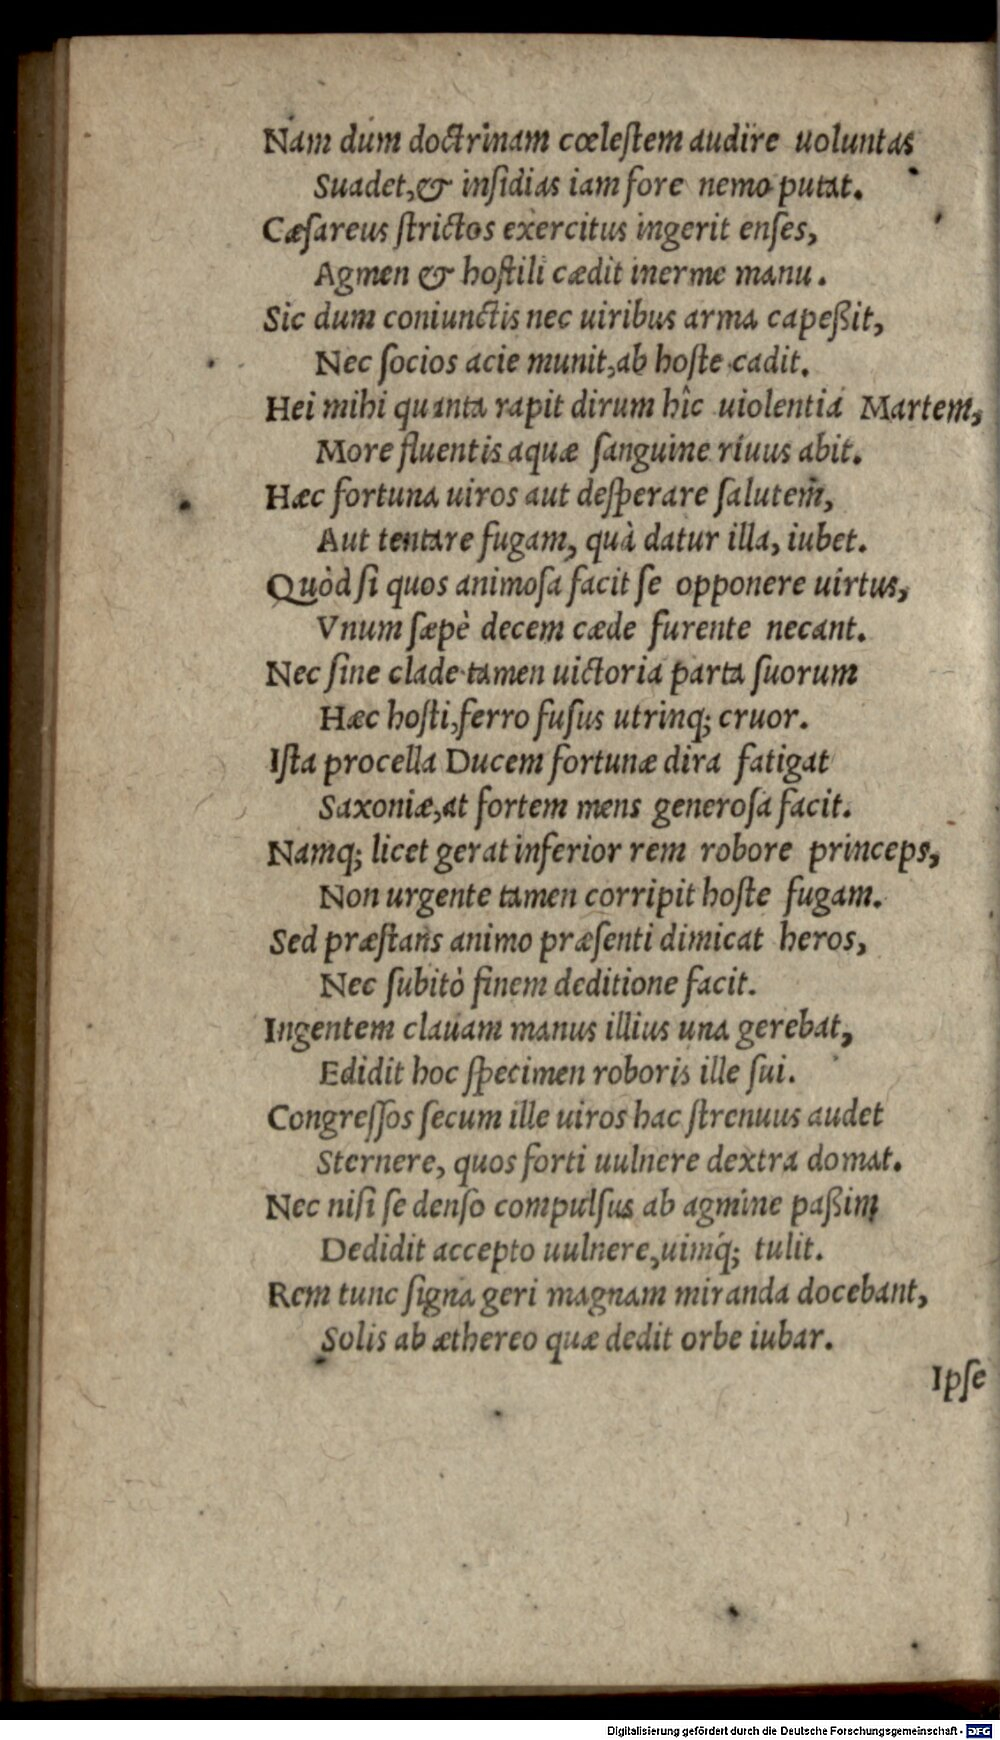 Nam dum doctrinam cœleſtem audire uoluntas
Suadet, & inſidias iam fore nemo putat.
Cæſareus ſtrictos exercitus ingerit enſes,
Agmen & hoſtili cædit inerme manu.
Sic dum coniunctis nec uiribus arma capeßit,
Nec ſocios acie munit, ab hoſte cadit.
Hei mihi quanta rapit dirum hîc uiolentia Martem,
More fluentis aquæ ſanguine riuus abit.
Hæc fortuna uiros aut deſperare ſalutem,
Aut tentare fugam, quà datur illa, iubet.
Quòd ſi quos animoſa facit ſe opponere uirtus,
Vnum ſæpè decem cæde furente necant.
Nec ſine clade tamen uictoria parta ſuorum
Hæc hoſti, ferro fuſus utrinq; cruor.
Iſta procella Ducem fortunæ dira fatigat
Saxoniæ, at fortem mens generoſa facit.
Namq; licet gerat inferior rem robore princeps,
Non urgente tamen corripit hoſte fugam.
Sed præſtans animo præſenti dimicat heros,
Nec ſubitò finem deditione facit.
Ingentem clauam manus illius una gerebat,
Edidit hoc ſpecimen roboris ille ſui.
Congreſſos ſecum ille uiros hac ſtrenuus audet
Sternere, quos forti uulnere dextra domat.
Nec niſi ſe denſo compulſus ab agmine paßim
Dedidit accepto uulnere, uimq́; tulit.
Rem tunc ſigna geri magnam miranda docebant,
Solis ab æthereo quæ dedit orbe iubar.
Ipſe
Digitalisierung gefördert durch die Deutsche Forschungsgemeinschaft - DFG